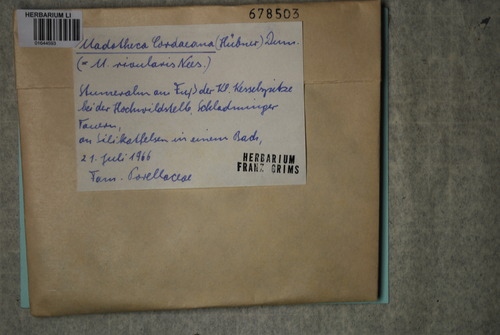 HERBARIUM LI
678503
Madotheca Cordaeana (Hübner) Dum.
(= M. rivularis Nees.)
am Fuß der Kl. Kesselspitze
bei der Hochwildstelle, Schladminger
Tauern,
an Silikatfelsen in einem Bach,
21. Juli 1966
Fam. Porellaceae
HERBARIUM
FRANZ GRIMS